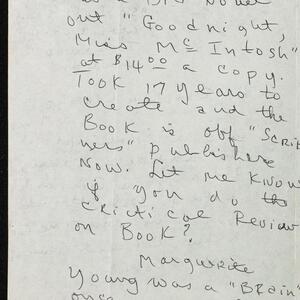 a Big Novel
out "Goodnight,
Miss Mc Intosh"
at $14.00 a copy.
Took 17 years to
create and the
Book is off "Scrib
ners" publishers
Now. Let me know
if you do
Critical Review
on Book?
Marguerite
Young was a "Brain"
once